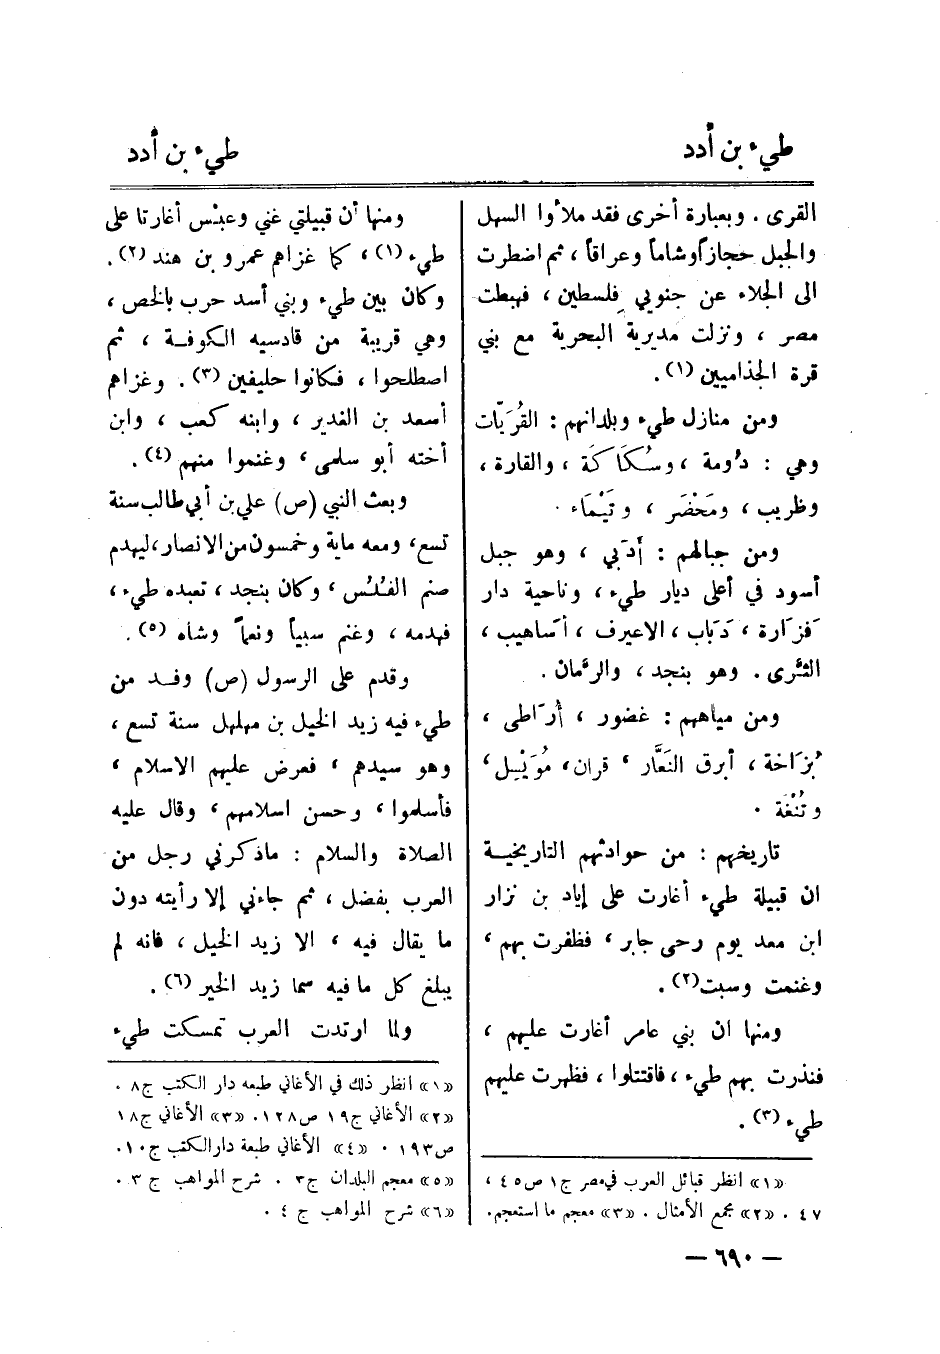 طيء بن أدد
طيء بن أدد
القرى . وبعبارة أخرى فقد ملأوا السهل
والجبل حجازاً وشاماً وعراقاً ، ثم اضطرت
الى الجلاء عن جنوبي فلسطين ، فهبطت
مصر ، ونزلت مديرية البحرية مع بني
قرة الجذاميين (١) .
ومن منازل طيء وبلدانهم : القُرَيّات
وهي : دُومة ، وسُكَاكَة ، والقارة ،
وظريب ، ومَحْضَر ، وتَيْماء .
ومن جبالهم : أَدَبي ، وهو جبل
أسود في أعلى ديار طيء ، وناحية دار
فَزارة ، دَبَاب ، الاعيرف ، أَساهيب ،
الثَّرى . وهو بنجد ، والرَّمان .
ومن مياههم : غضور ، أُرَاطى ،
بُزَاخة ، أبرق النَعَّار ، قران ، مُوَيْسِل ،
وتُنْغَة .
تاريخهم : من حوادثهم التاريخية
ان قبيلة طيء أغارت على إياد بن نزار
ابن معد يوم رحى جابر ، فظفرت بهم ،
وغنمت وسبت (٢) .
ومنها ان بني عامر أغارت عليهم ،
فنذرت بهم طيء ، فاقتتلوا ، فظهرت عليهم
طيء (٣) .
«١» انظر قبائل العرب في مصر ج١ ص٤٥ ،
٤٧ . «٢» مجمع الأمثال . «٣» معجم ما استعجم .
ومنها أن قبيلتي غني وعبْس أغارتا على
طيء (١) ، كما غزاهم عمرو بن هند (٢) .
وكان بين طيء وبني أسد حرب بالخص ،
وهي قريبة من قادسيه الكوفة ، ثم
اصطلحوا ، فكانوا حليفين (٣) . وغزاهم
أسعد بن الغدير ، وابنه كعب ، وابن
أخته أبو سلمى ، وغنموا منهم (٤) .
وبعث النبي (ص) علي بن أبي طالب سنة
تسع ، ومعه ماية وخمسون من الانصار ، ليهدم
صنم الفُلُس ، وكان بنجد ، تعبده طيء ،
فهدمه ، وغنم سبياً ونعماً وشاه (٥) .
وقدم على الرسول (ص) وفد من
طيء فيه زيد الخيل بن مهلهل سنة تسع ،
وهو سيدهم ، فعرض عليهم الاسلام ،
فأسلموا ، وحسن اسلامهم ، وقال عليه
الصلاة والسلام : ماذكرني رجل من
العرب بفضل ، ثم جاءني إلا رأيته دون
ما يقال فيه ، الا زيد الخيل ، فانه لم
يبلغ كل ما فيه سما زيد الخير (٦) .
ولما ارتدت العرب تمسكت طيء
«١» انظر ذلك في الأغاني طبعه دار الكتب ج٨ .
«٢» الأغاني ج١٩ ص١٢٨ . «٣» الأغاني ج١٨
ص١٩٣ . «٤» الأغاني طبعة دارالكتب ج١٠.
«٥» معجم البلدان ج٣ . شرح المواهب ج ٣ .
«٦» شرح المواهب ج ٤ .
— ٦٩٠ —